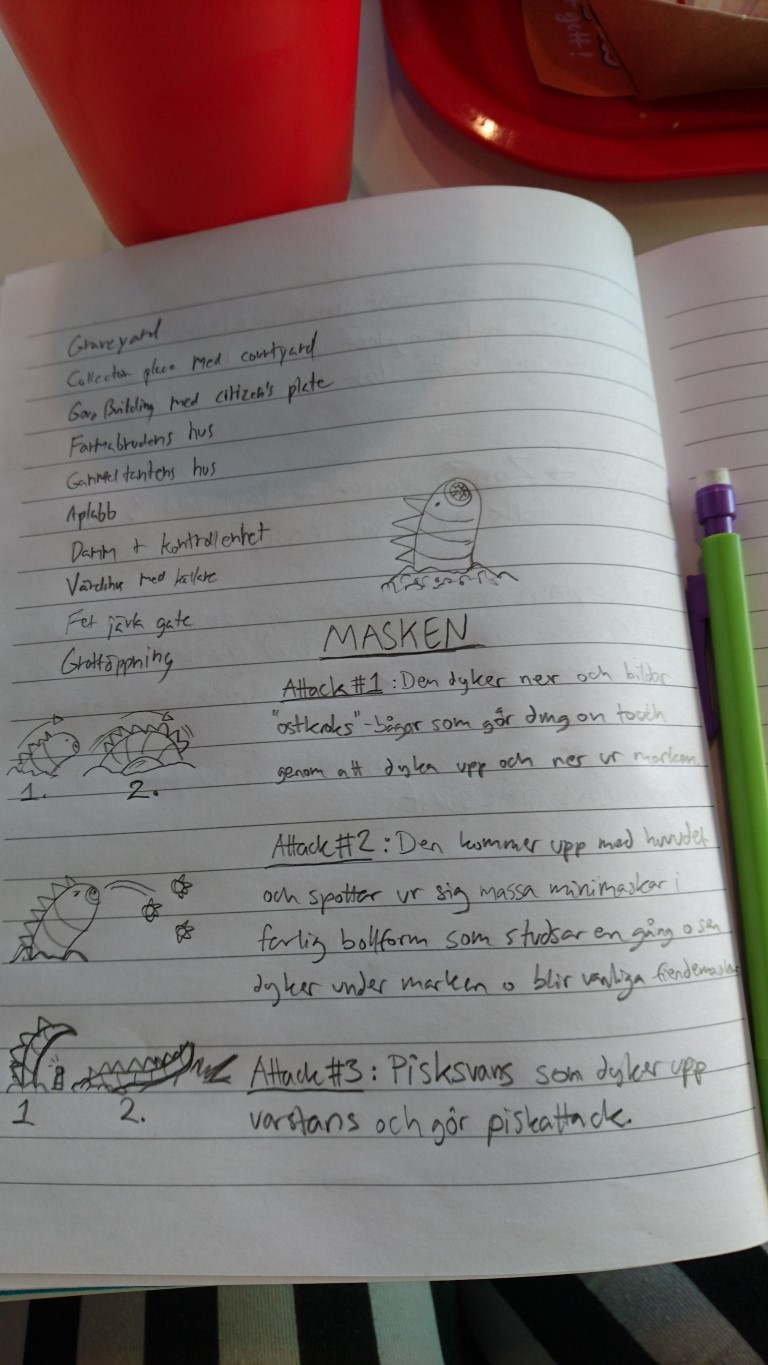 gott!
Graveyard
Collector place med courtyard
Building med citizen's plate
Farmabrudens hus
Gammeltantens hus
Aplabb
Damm + kontrollenhet
Värdshus med källare
Fet jävla gate
Grottöppning
MASKEN
Attack #1: Den dyker ner och bildar
"ostkroks"-bågar som gör dmg on touch
genom att dyka upp och ner ur marken
1. 2.
Attack #2: Den kommer upp med huvudet
och spottar ur sig massa minimaskar i
farlig bollform som studsar en gång o sen
dyker under marken o blir vanliga fiendemaskar
Attack #3: Pisksvans som dyker upp
1 2.
varstans och gör piskattack.